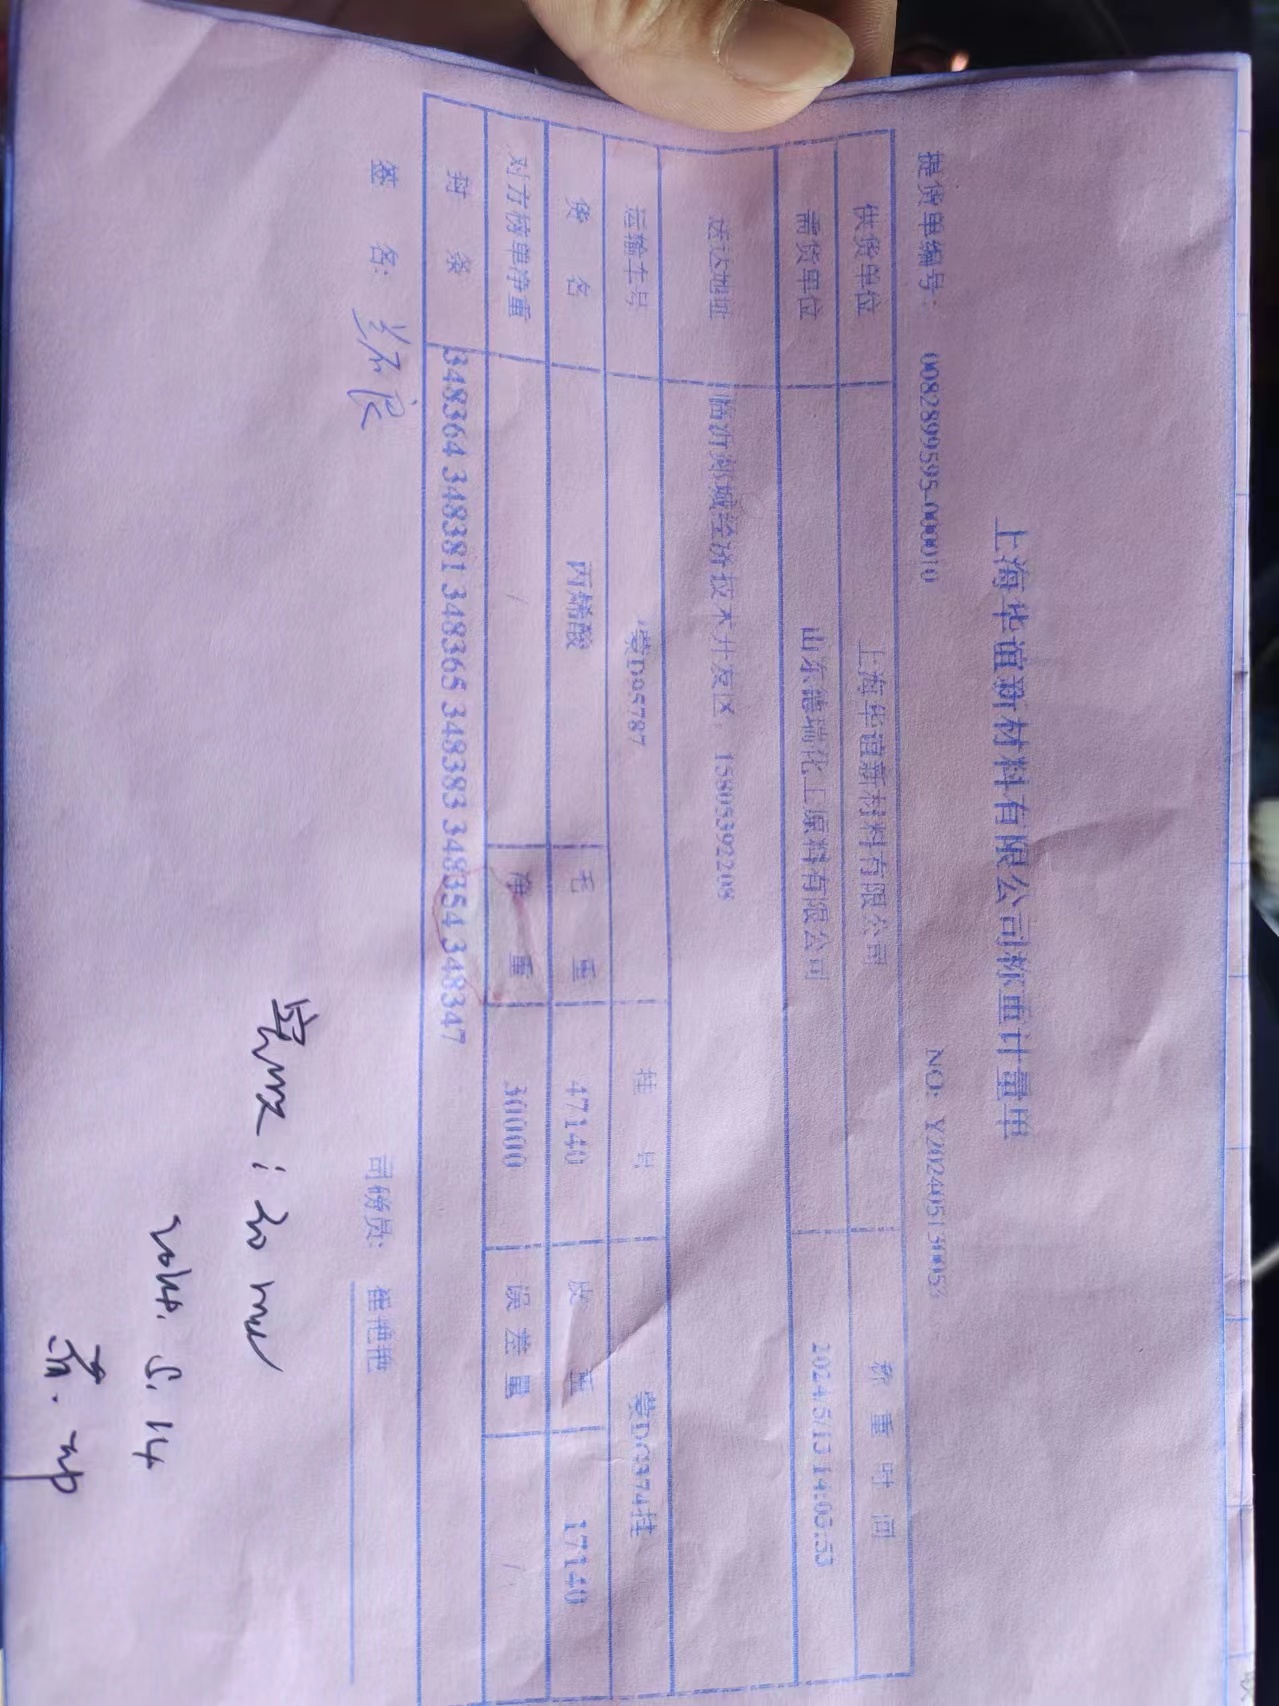 上海华谊新材料有限公司称重计量单
提货单编号: 0082899595-000010 NO: Y202405130053
供货单位 上海华谊新材料有限公司 称重时间
需货单位 山东德瑞化工原料有限公司 2024/5/13 14:03:53
送达地址 临沂郯城经济技术开发区, 15805392208
运输车号 蒙D95787 挂号 蒙DC374挂
货名 丙烯酸 毛重 47140 皮重 17140
对方榜单净重 / 净重 30000 误差量 /
封条 348364 348381 348365 348383 348354 348347
签名: 司磅员:
2024. 5. 14